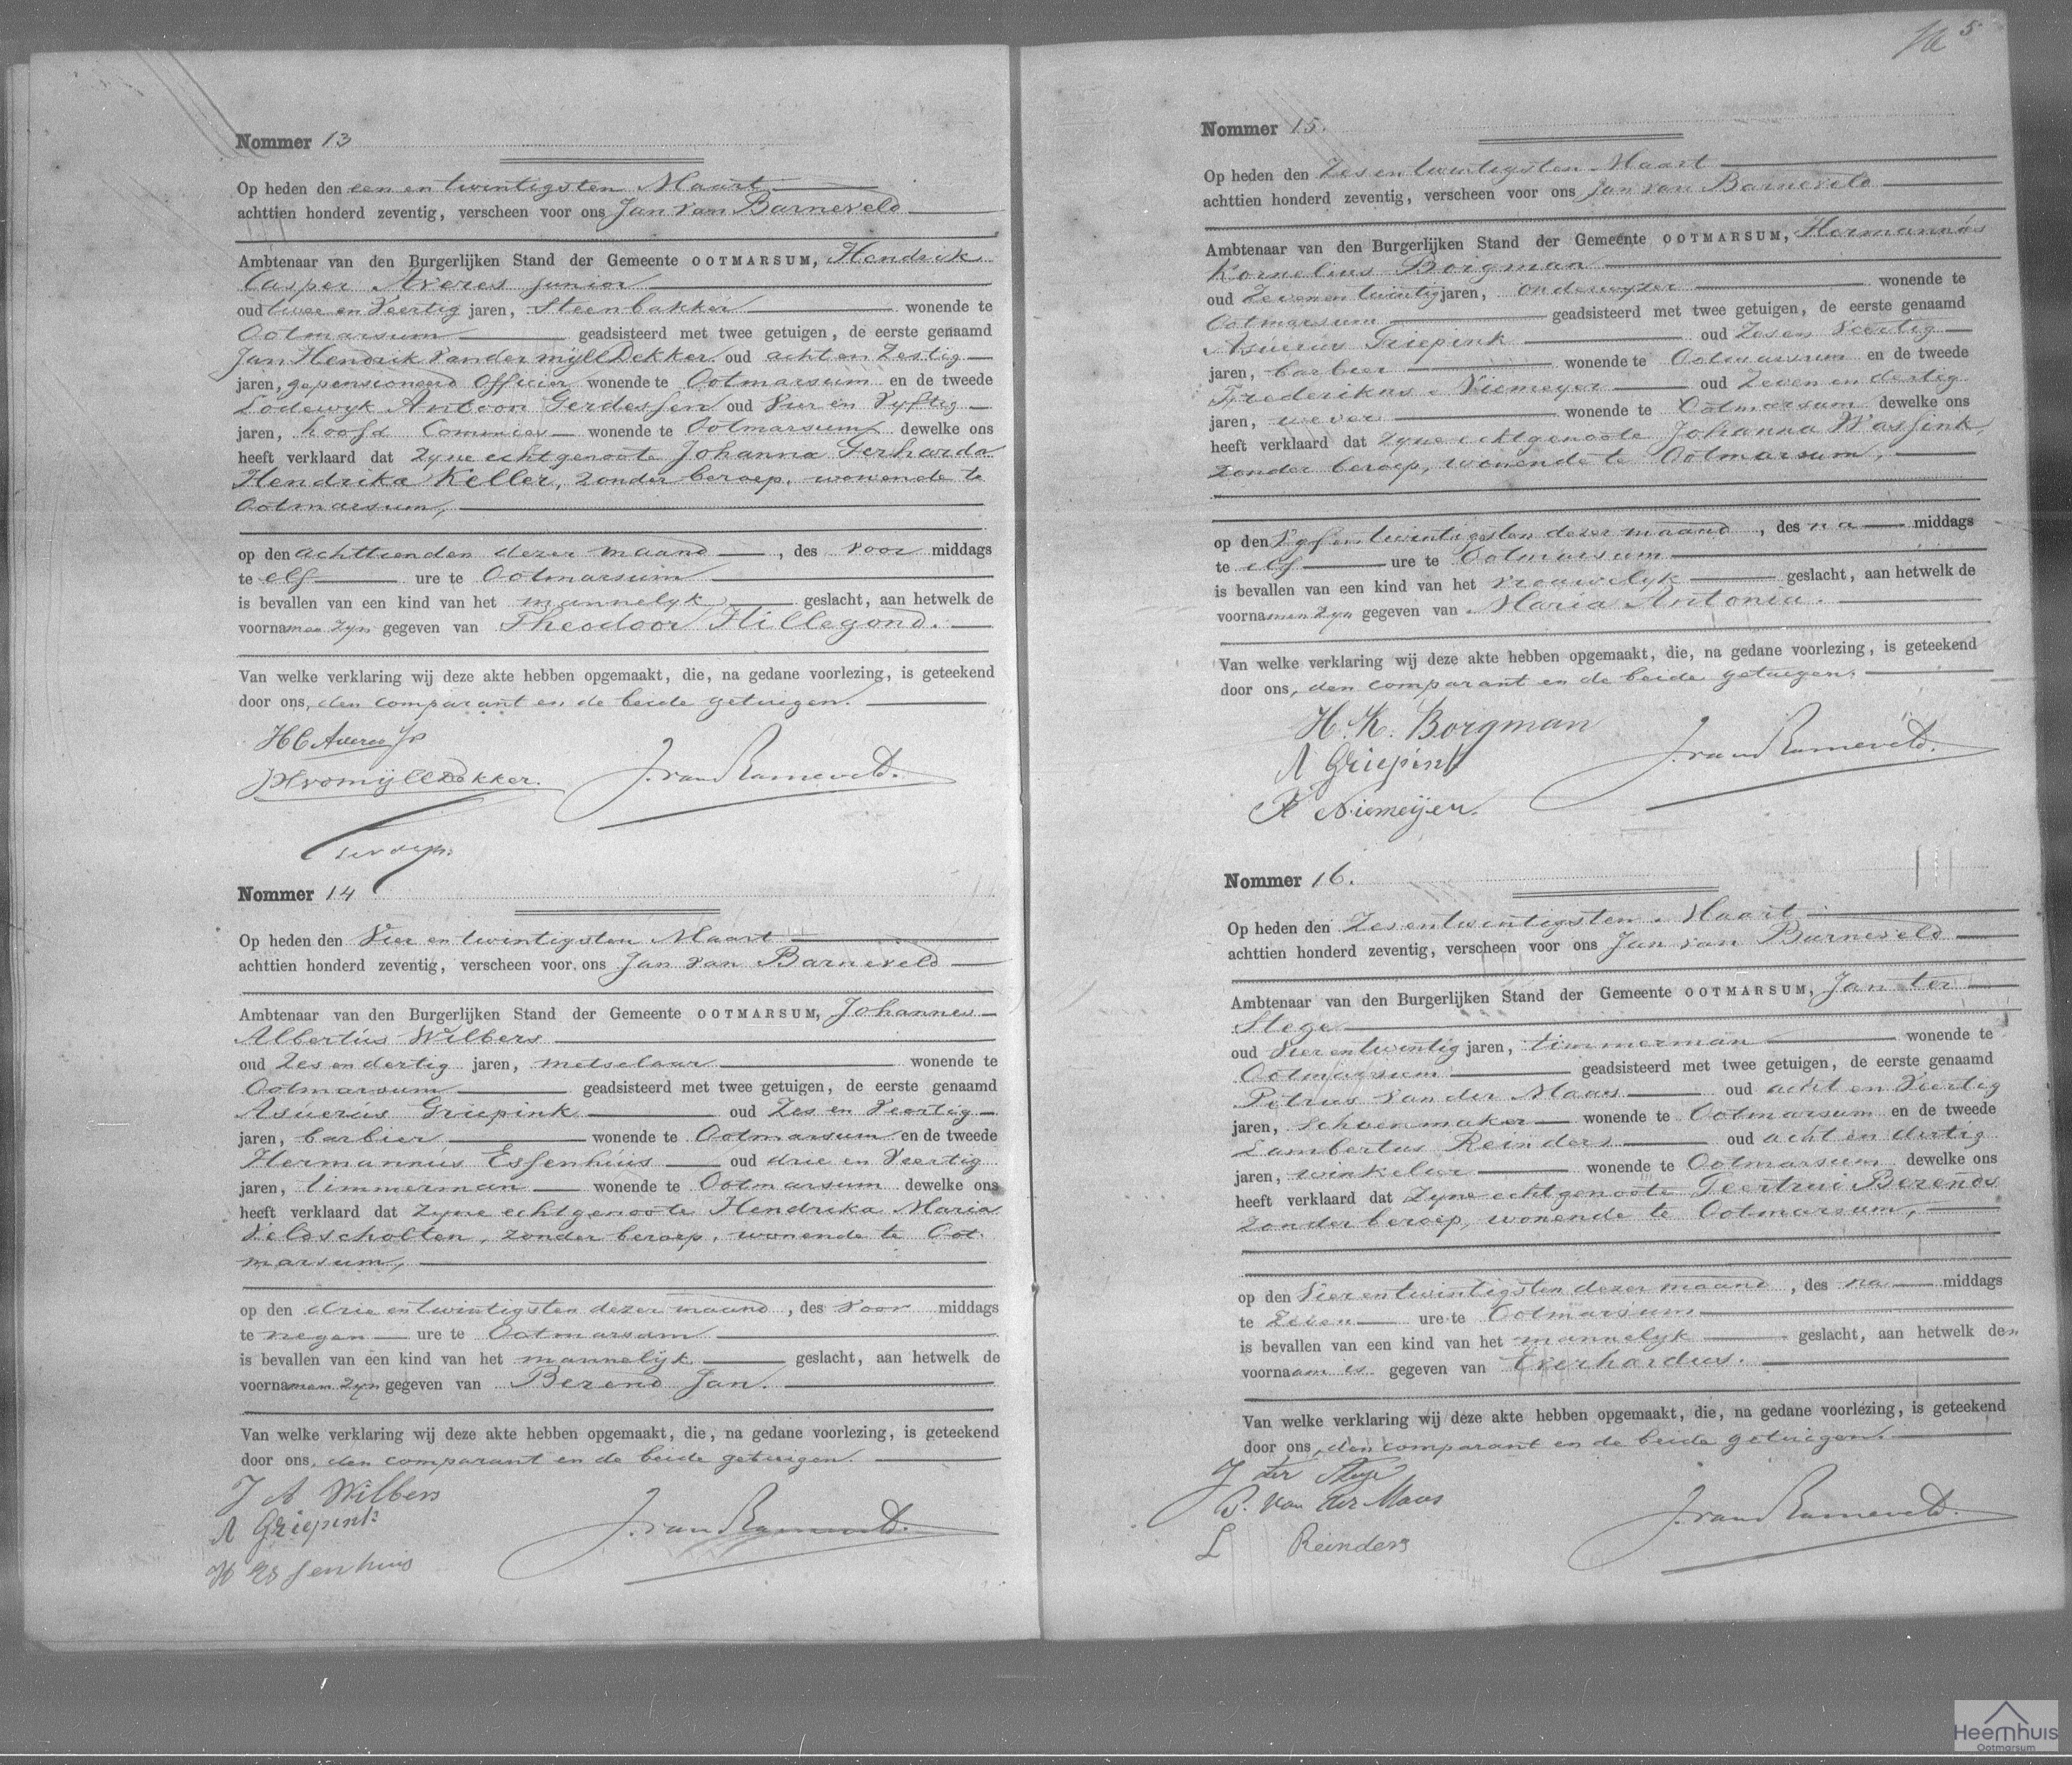 Nommer 13
Op heden den een en twintigsten Maart
achttien honderd zeventig, verscheen voor ons Jan van Barneveld
Ambtenaar van den Burgerlijken Stand der Gemeente OOTMARSUM, Hendrik
Casper Averes junior
oud twee en Veertig jaren, Steenbakker wonende te
Ootmarsum geadsisteerd met twee getuigen, de eerste genaamd
Jan Hendrik Vander Myll Dekker oud acht en Zestig
jaren, gepensioneerd Officier wonende te Ootmarsum en de tweede
Lodewyk Antoon Gerdessen oud Vier en Vyftig
jaren, hoofd Commies wonende te Ootmarsum dewelke ons
heeft verklaard dat Zyne echtgenoote Johanna Gerharda
Hendrika Keller, Zonder beroep, wonende te
Ootmarsum,
op den achttienden dezer maand, des voor middags
te elf ure te Ootmarsum
is bevallen van een kind van het mannelyk geslacht, aan hetwelk de
voornamen zyn gegeven van Theodoor Hillegond.
Van welke verklaring wij deze akte hebben opgemaakt, die, na gedane voorlezing, is geteekend
door ons, den comparant en de beide getuigen.
HC Averes Jr
JHvdMyllDekker. J. van Barneveld.
Nommer 14
Op heden den Vier en twintigsten Maart
achttien honderd zeventig, verscheen voor ons Jan van Barneveld
Ambtenaar van den Burgerlijken Stand der Gemeente OOTMARSUM, Johannes
Albertus Wilbers
oud Zes en dertig jaren, metselaar wonende te
Ootmarsum geadsisteerd met twee getuigen, de eerste genaamd
Asuerus Griepink oud Zes en Veertig
jaren, barbier wonende te Ootmarsum en de tweede
Hermannus Essenhuis oud drie en Veertig
jaren, timmerman wonende te Ootmarsum dewelke ons
heeft verklaard dat Zyne echtgenoote Hendrika Maria
Veldscholten, Zonder beroep, wonende te Oot
marsum,
op den drie en twintigsten dezer maand, des voor middags
te negen ure te Ootmarsum
is bevallen van een kind van het mannelyk geslacht, aan hetwelk de
voornamen zyn gegeven van Berend Jan.
Van welke verklaring wij deze akte hebben opgemaakt, die, na gedane voorlezing, is geteekend
door ons, den comparant en de beide getuigen.
J A Wilbers
A Griepink J. van Barneveld.
H Essenhuis
5
Nommer 15.
Op heden den Zes en twintigsten Maart
achttien honderd zeventig, verscheen voor ons Jan van Barneveld
Ambtenaar van den Burgerlijken Stand der Gemeente OOTMARSUM, Hermannus
Kornelius Borgman
oud Zeven en twintig jaren, onderwyzer wonende te
Ootmarsum geadsisteerd met twee getuigen, de eerste genaamd
Asuerus Griepink oud Zes en Veertig
jaren, barbier wonende te Ootmarsum en de tweede
Frederikus Niemeyer oud Zeven en dertig
jaren, wever wonende te Ootmarsum dewelke ons
heeft verklaard dat Zyne echtgenoote Johanna Wassink
Zonder beroep, wonende te Ootmarsum,
op den Vyf en twintigsten dezer maand, des na middags
te elf ure te Ootmarsum
is bevallen van een kind van het vrouwelyk geslacht, aan hetwelk de
voornamen zyn gegeven van Maria Antonia.
Van welke verklaring wij deze akte hebben opgemaakt, die, na gedane voorlezing, is geteekend
door ons, den comparant en de beide getuigen.
H. K. Borgman
A Griepink J. van Barneveld.
F Niemeijer.
Nommer 16.
Op heden den Zes en twintigsten Maart
achttien honderd zeventig, verscheen voor ons Jan van Barneveld
Ambtenaar van den Burgerlijken Stand der Gemeente OOTMARSUM, Jan ter
Stege
oud Vier en twintig jaren, timmerman wonende te
Ootmarsum geadsisteerd met twee getuigen, de eerste genaamd
Petrus van der Maas oud acht en Veertig
jaren, Schoenmaker wonende te Ootmarsum en de tweede
Lambertus Reinders oud acht en dertig
jaren, winkelier wonende te Ootmarsum dewelke ons
heeft verklaard dat Zyne echtgenoote Geertrui Berends
Zonder beroep, wonende te Ootmarsum,
op den Vier en twintigsten dezer maand, des na middags
te Zeven ure te Ootmarsum
is bevallen van een kind van het mannelyk geslacht, aan hetwelk den
voornaam is gegeven van Everhardus.
Van welke verklaring wij deze akte hebben opgemaakt, die, na gedane voorlezing, is geteekend
door ons, den comparant en de beide getuigen.
J ter Stege
P. van der Maas
L Reinders J. van Barneveld.
Heemhuis
Ootmarsum